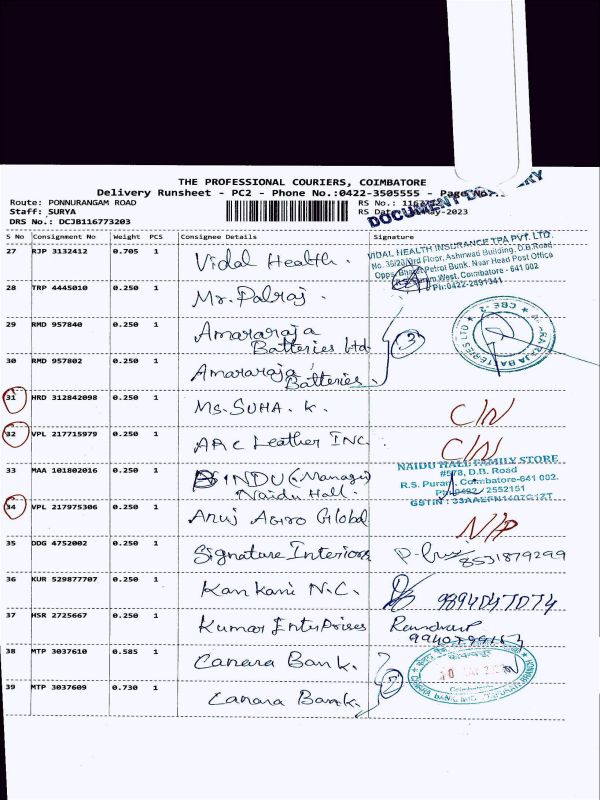 THE PROFESSIONAL COURIERS, COIMBATORE
Delivery Runsheet - PC2 - Phone No.:0422-3505555 - Page No.:
Route: PONNURANGAM ROAD
Staff: SURYA
DRS No.: DCJB116773203
RS No.:
RS Date -2023
S No Consignment No Weight PCS Consignee Details Signature
27 RJP 3132412 0.705 1 Vidal Health.
VIDAL HEALTH INSURANCE TPA PVT. LTD.
No. 36/20 3rd Floor, Ashirwad Building, D.B.Road
Opps. Bharat Petrol Bunk, Near Head Post Office
West, Coimbatore - 641 002
Ph:0422-2491341
28 TRP 4445010 0.250 1 Mr. Palraj.
29 RMD 957840 0.250 1 Amararaja
Batteries Ltd
3
AMARA RAJA BATTERIES LTD * CBE-2 *
30 RMD 957802 0.250 1 Amararaja
Batteries.
31 HRD 312842098 0.250 1 Ms. SUHA. K. C/N
32 VPL 217715979 0.250 1 AAC Leather INC. C/N
33 MAA 101802016 0.250 1 INDU (Manager)
Naidu Hall.
NAIDU HALL FAMILY STORE
#578, D.B. Road
R.S. Puram, Coimbatore-641 002.
Ph: 0422 2552151
GSTIN :
34 VPL 217975306 0.250 1 Anuj Agro Global N/P
35 DDG 4752002 0.250 1 Signature Interiors 8531879299
36 KUR 529877707 0.250 1 Kankani N.C. 9894047074
37 HSR 2725667 0.250 1 Kumar Enterprises
38 MTP 3037610 0.585 1 Canara Bank.
2
CANARA BANK
39 MTP 3037609 0.730 1 Canara Bank.